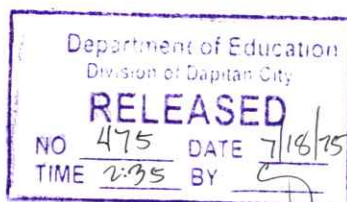 Department of Education
Division of Dapitan City
RELEASED
NO 475 DATE 7/18/25
TIME 2:35 BY